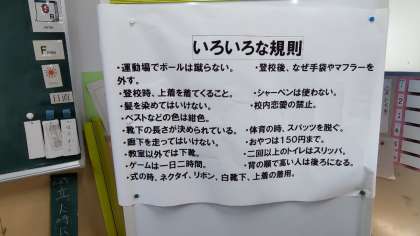 いろいろな規則
・運動場でボールは蹴らない。　・登校後、なぜ手袋やマフラーを
外す。
・登校時、上着を着てくること。　・シャーペンは使わない。
・髪を染めてはいけない。　・校内恋愛の禁止。
・ベストなどの色は紺色。
・靴下の長さが決められている。　・体育の時、スパッツを脱ぐ。
・廊下を走ってはいけない。　・おやつは150円まで。
・教室以外では下靴。　・二回以上のトイレはスリッパ。
・ゲームは一日二時間。　・背の順で高い人は後ろになる。
・式の時、ネクタイ、リボン、白靴下、上着の着用。
日直